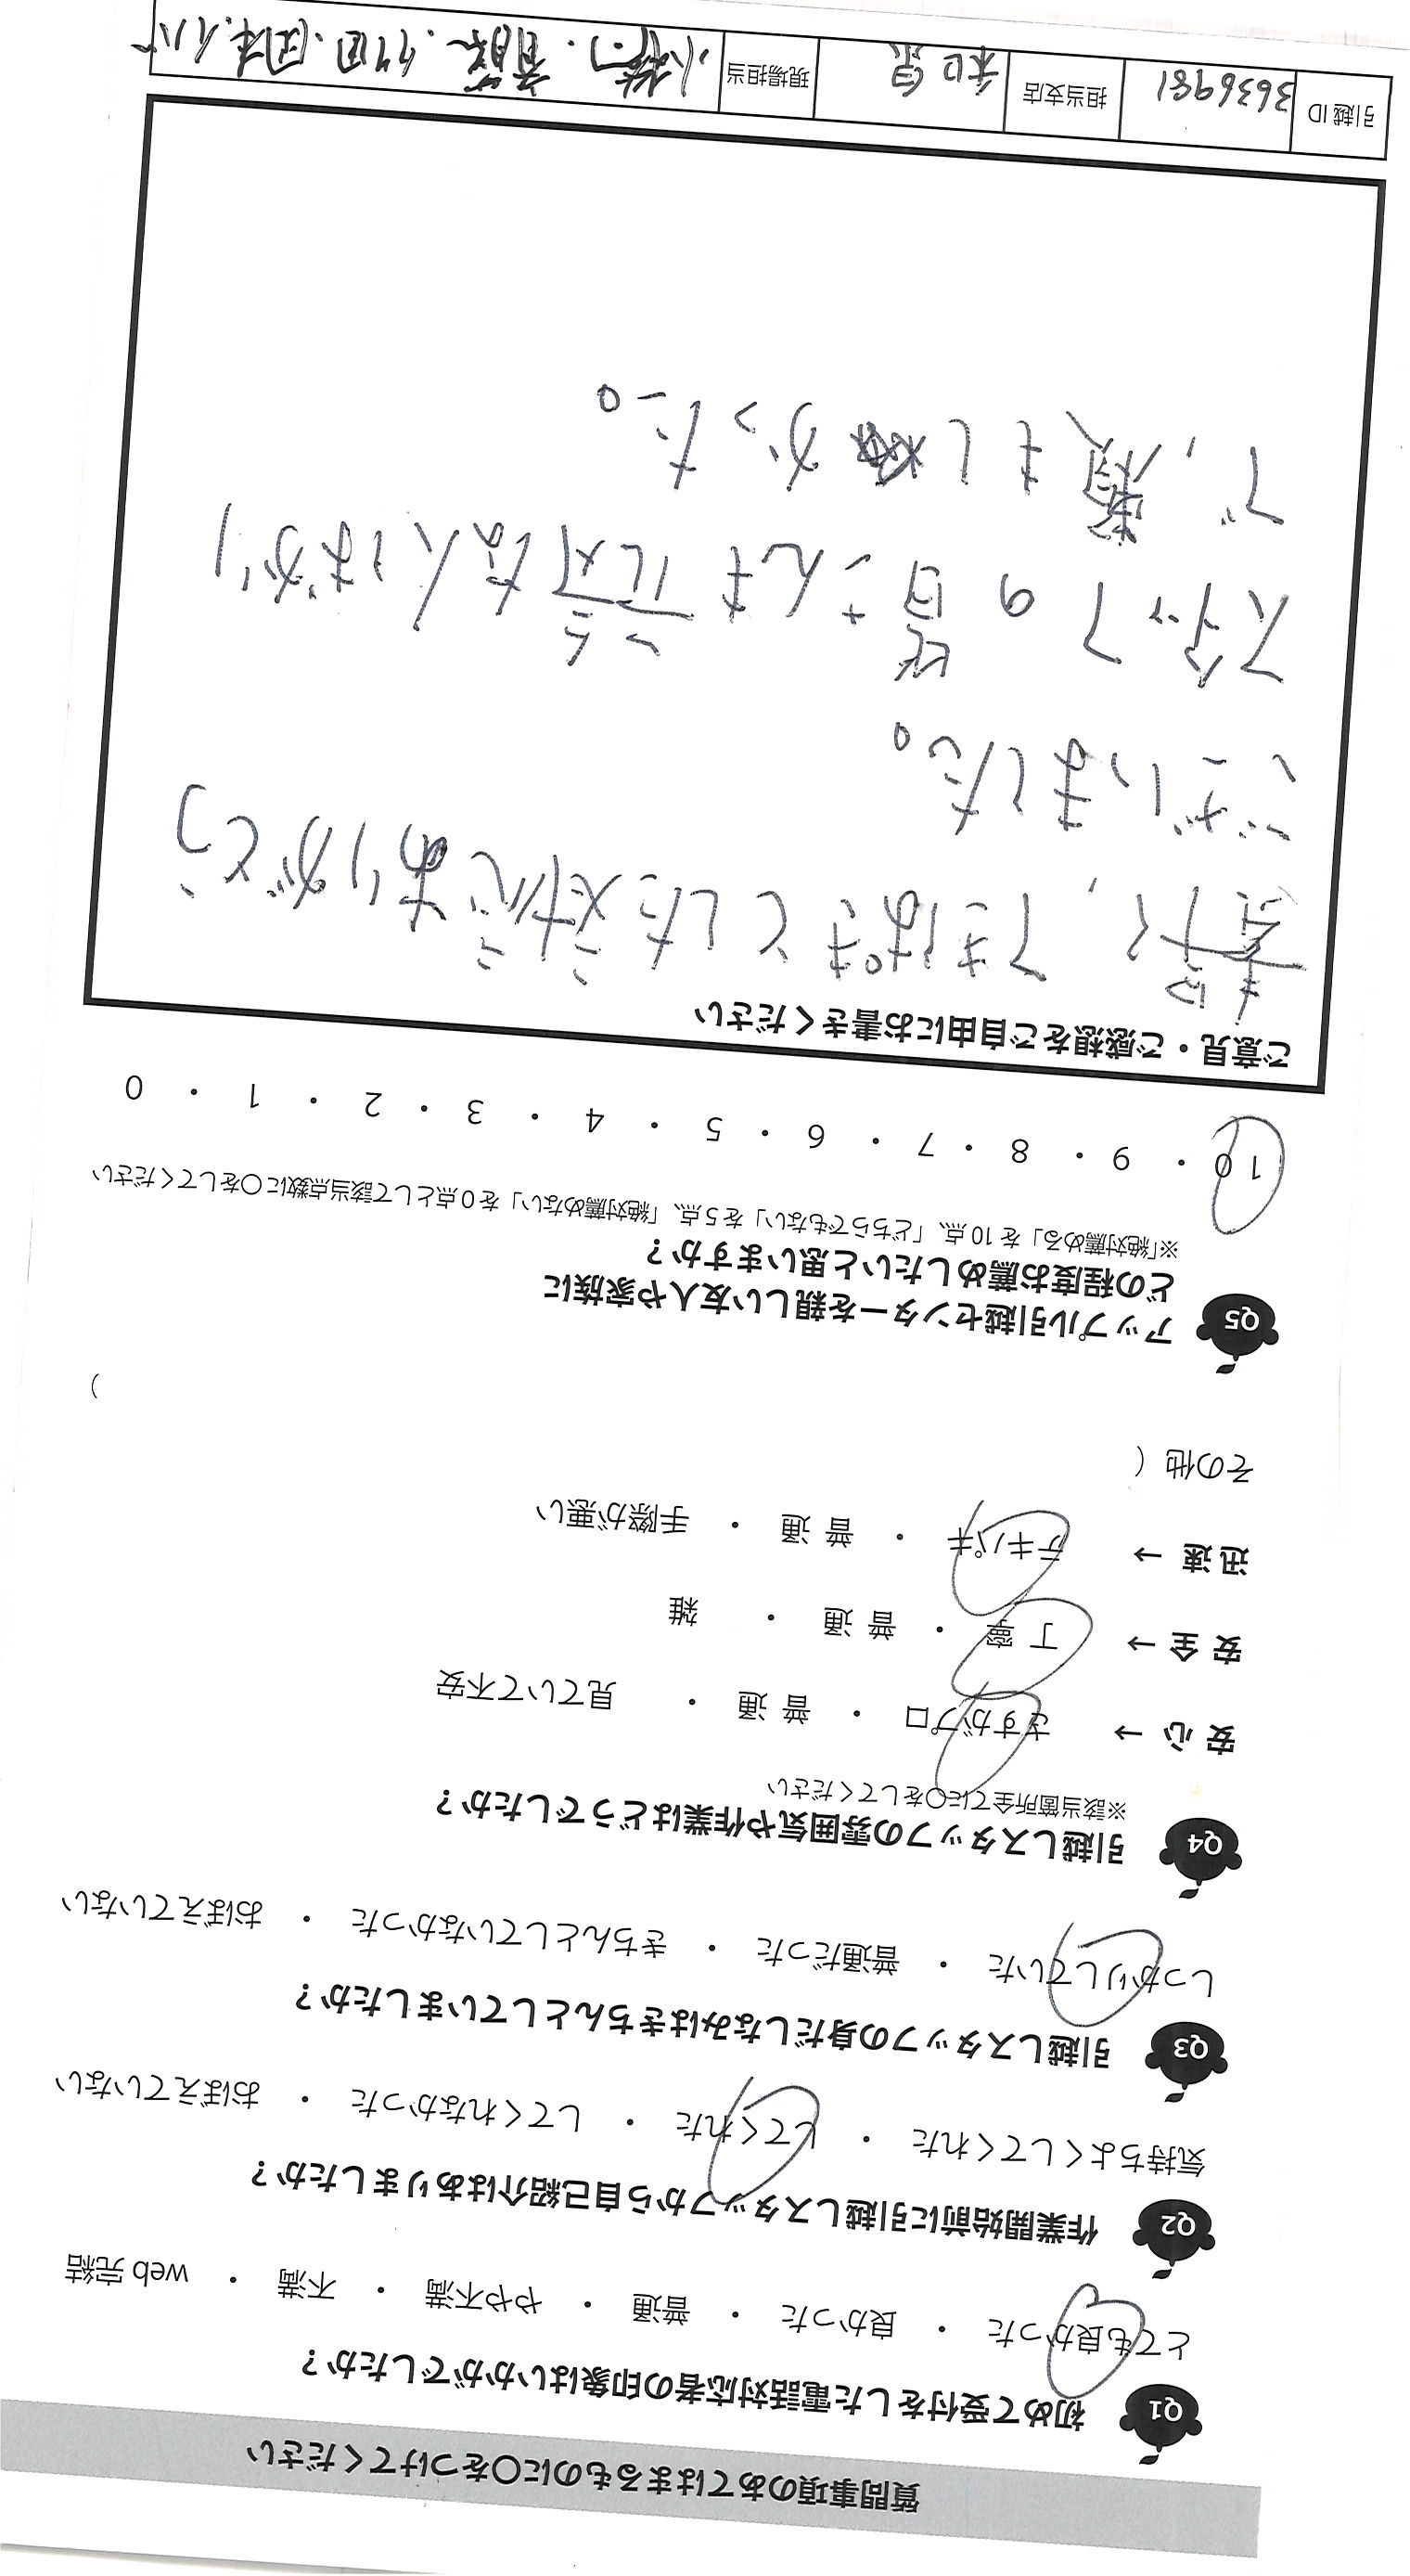 質問事項のあてはまるものに〇をつけてください
Q1 初めて受付をした電話対応者の印象はいかがでしたか？
とても良かった ・ 良かった ・ 普通 ・ やや不満 ・ 不満 ・ web 完結
Q2 作業開始前に引越しスタッフから自己紹介はありましたか？
気持ちよくしてくれた ・ してくれた ・ してくれなかった ・ おぼえていない
Q3 引越しスタッフの身だしなみはきちんとしていましたか？
しっかりしていた ・ 普通だった ・ きちんとしていなかった ・ おぼえていない
Q4 引越しスタッフの雰囲気や作業はどうでしたか？
※該当箇所全てに〇をしてください
安心 → さすがプロ ・ 普通 ・ 見ていて不安
安全 → 丁寧 ・ 普通 ・ 雑
迅速 → テキパキ ・ 普通 ・ 手際が悪い
その他 （ ）
Q5 アップル引越センターを親しい友人や家族に
どの程度お薦めしたいと思いますか？
※「絶対薦める」を 10 点、「どちらでもない」を 5 点、「絶対薦めない」を 0 点として該当点数に〇をしてください
10 ・ 9 ・ 8 ・ 7 ・ 6 ・ 5 ・ 4 ・ 3 ・ 2 ・ 1 ・ 0
ご意見・ご感想をご自由にお書きください
素早く、てきぱきとした対応ありがとう
ございました。
スタッフの皆さんも元気な人ばかり
で、頼もしかった。
引越 ID 3636981 担当支店 和泉 現場担当